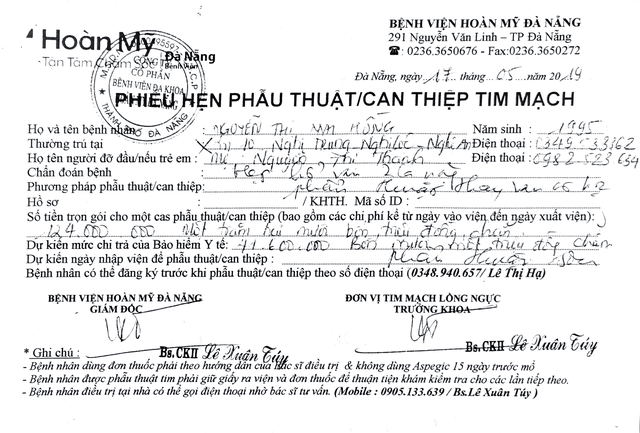 BỆNH VIỆN HOÀN MỸ ĐÀ NẴNG
291 Nguyễn Văn Linh – TP Đà Nẵng
☎: 0236.3650676 - Fax:0236.3650272
Hoàn Mỹ
Đà Nẵng
Bệnh viện
Tận Tâm Chăm Sóc
CÔNG TY
CỔ PHẦN
BỆNH VIỆN ĐA KHOA
THÀNH PHỐ ĐÀ NẴNG
Đà Nẵng, ngày 17 tháng 05 năm 2019
PHIẾU HẸN PHẪU THUẬT/CAN THIỆP TIM MẠCH
Họ và tên bệnh nhân : NGUYỄN THỊ MAI HỒNG Năm sinh : 1995
Thường trú tại Xóm 10 Nghi Trung Nghi Lộc, Nghệ An Điện thoại : 0349533362
Họ tên người đỡ đầu/nếu trẻ em : Mẹ: Nguyễn Thị Thanh Điện thoại : 0982523634
Chẩn đoán bệnh : Hẹp hở van 2 lá nặng
Phương pháp phẫu thuật/can thiệp : phẫu thuật thay van
Hồ sơ : / KHTH. Mã số ID :
Số tiền trọn gói cho một cas phẫu thuật/can thiệp (bao gồm các chi phí kể từ ngày vào viện đến ngày xuất viện) :
124.000 000 Một trăm hai mươi bốn triệu đồng chẵn
Dự kiến mức chi trả của Bảo hiểm Y tế: 41.600.000 Bốn mươi một triệu đồng chẵn
Dự kiến ngày nhập viện để phẫu thuật/can thiệp : phẫu thuật sớm
Bệnh nhân có thể đăng ký trước khi phẫu thuật/can thiệp theo số điện thoại (0348.940.657/ Lê Thị Hạ)
BỆNH VIỆN HOÀN MỸ ĐÀ NẴNG ĐƠN VỊ TIM MẠCH LỒNG NGỰC
GIÁM ĐỐC TRƯỞNG KHOA
Bs.CKII Lê Xuân Túy Bs.CKII Lê Xuân Túy
* Ghi chú :
- Bệnh nhân dùng đơn thuốc phải theo hướng dẫn của bác sĩ điều trị & không dùng Aspegic 15 ngày trước mổ
- Bệnh nhân được phẫu thuật tim phải giữ giấy ra viện và đơn thuốc để thuận tiện khám kiểm tra cho các lần tiếp theo.
- Bệnh nhân điều trị tại nhà có thể gọi điện thoại nhờ bác sĩ tư vấn. (Mobile : 0905.133.639 / Bs.Lê Xuân Túy )